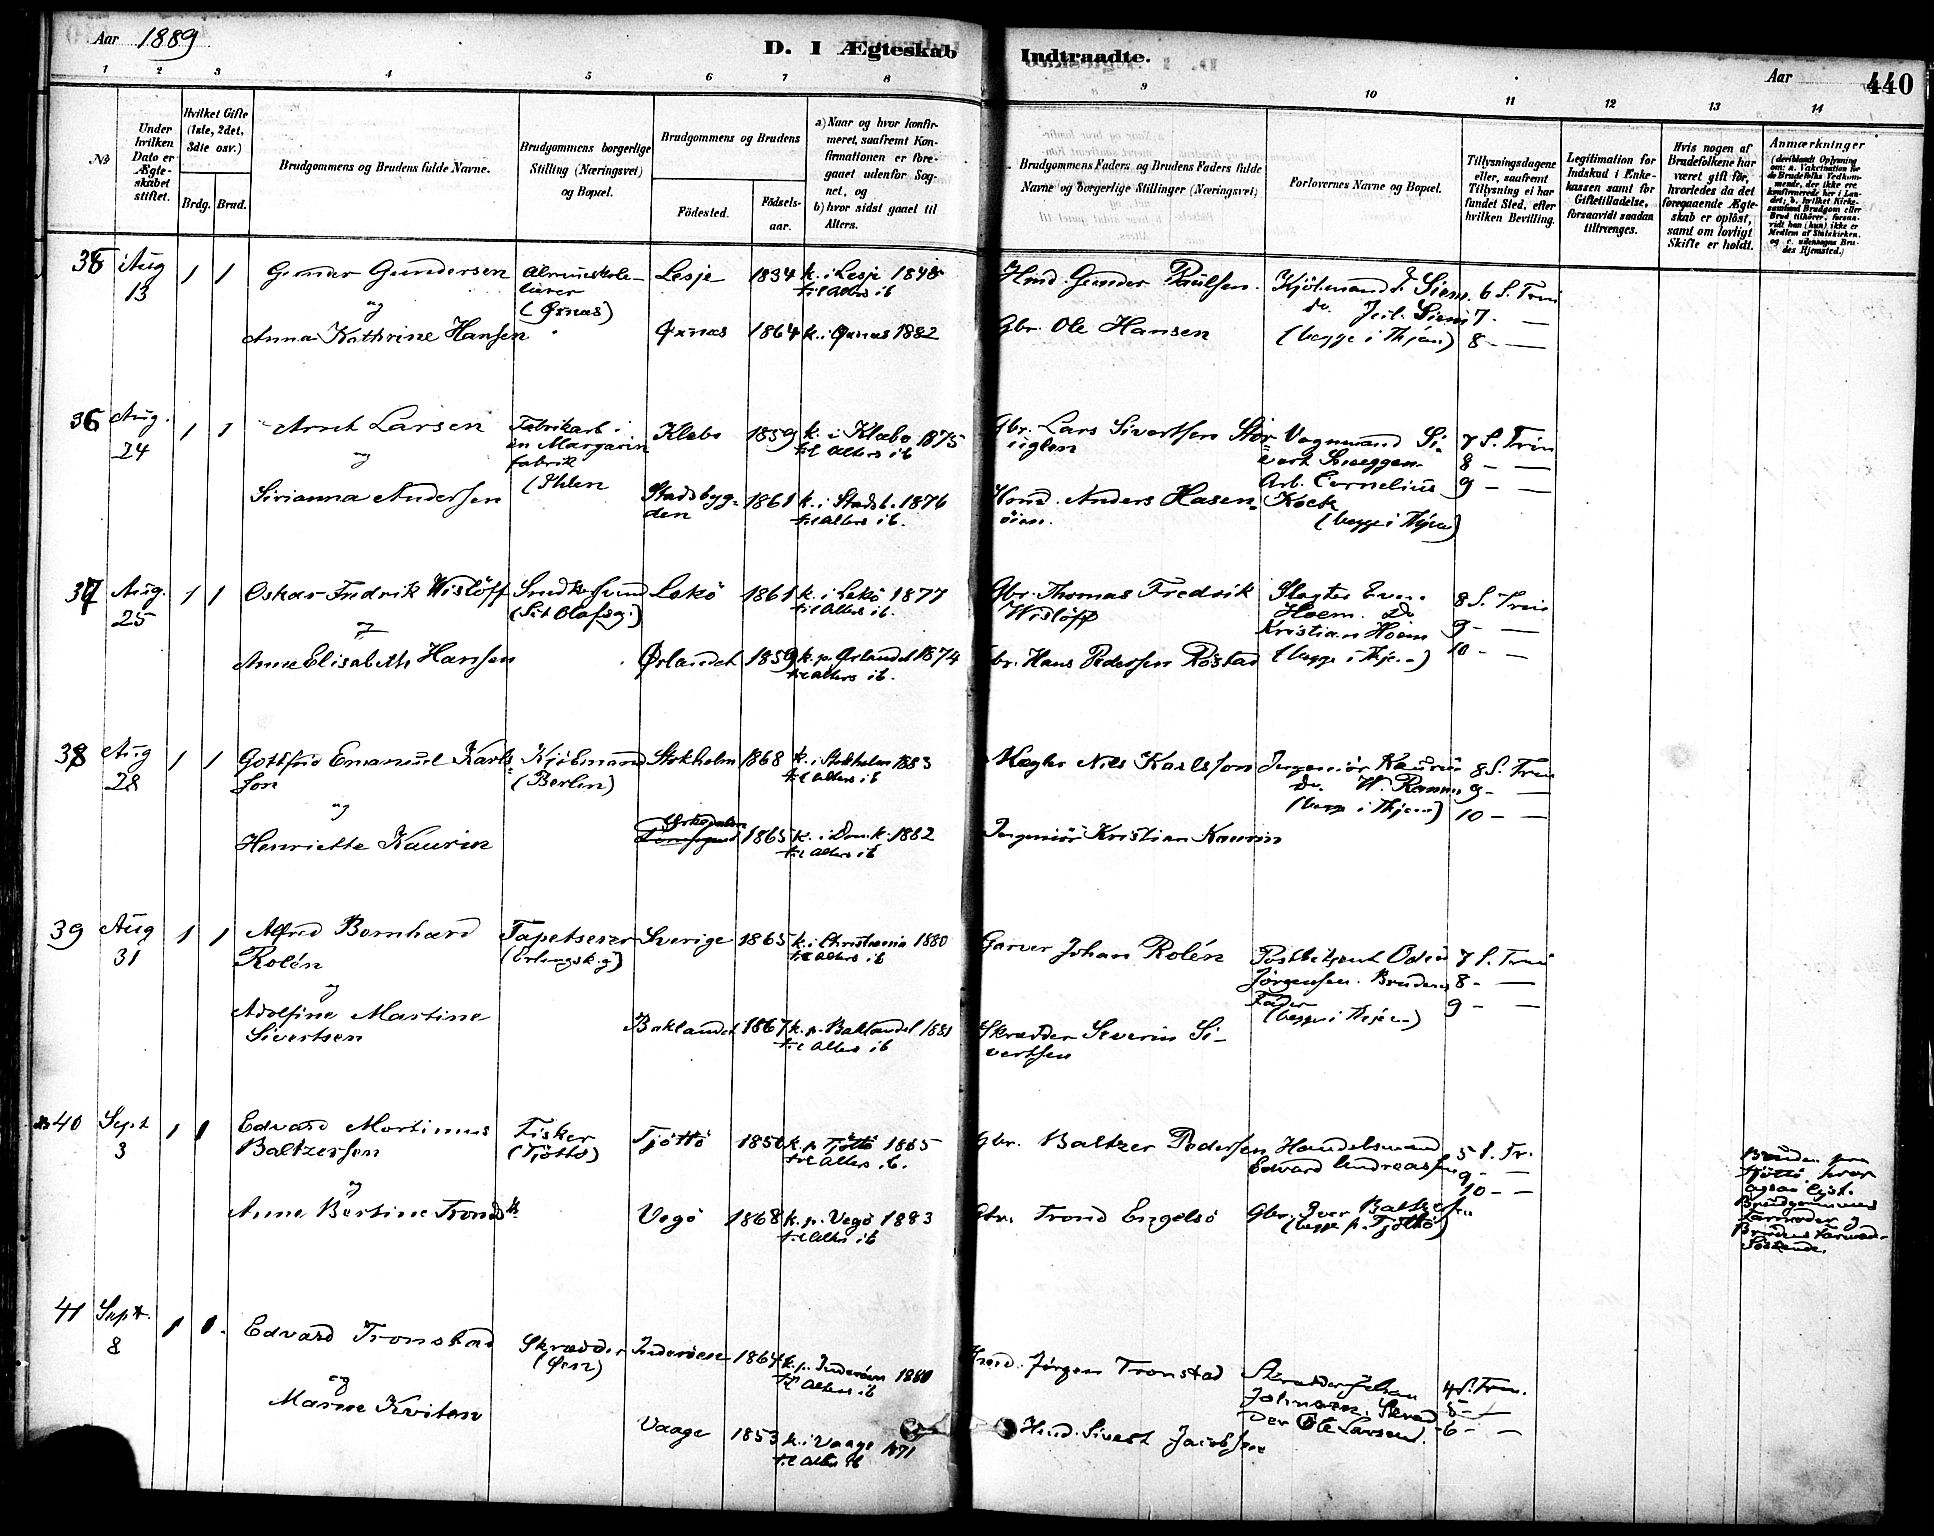 Aar 1889
D. I Ægteskab
Indtraadte.
Aar
440
1 2 3 4 5 6 7 8 9 10 11 12 13 14
No
Under hvilken Dato er Ægteskabet stiftet.
Hvilket Gifte (1ste, 2det, 3die osv.)
Brdg. Brud.
Brudgommens og Brudens fulde Navne.
Brudgommens borgerlige Stilling (Næringsvei) og Bopæl.
Brudgommens og Brudens
Fødested.
Fødselsaar.
a) Naar og hvor konfirmeret, saafremt Konfirmationen er foregaaet udenfor Sognet, og
b) hvor sidst gaaet til Alters.
Brudgommens Faders og Brudens Faders fulde Navne og borgerlige Stillinger (Næringsvei)
Forlovernes Navne og Bopæl.
Tillysningsdagene eller, saafremt Tillysning ei har fundet Sted, efter hvilken Bevilling.
Legitimation for Indskud i Enkekassen samt for Giftetilladelse, forsaavidt saadan tiltrænges.
Hvis nogen af Brudefolkene har været gift før, hvorledes da det foregaaende Ægteskab er opløst, samt om lovligt Skifte er holdt.
Anmærkninger
35 Aug 13 1 1
Gunder Gundersen
og
Anna Kathrine Hansen
Almueskolelærer
(Øxnæs)
Lesje 1834 k. i Lesje 1848
til Alters ib
Øxnæs 1864 k. i Øxnæs 1882
Hmd. Gunder Paulsen
Gbr. Ole Hansen
Kjøbmand F. Siem
do
(begge i Thjem)
6 S. Trin
7 - —
8 - —
36 Aug. 24 1 1
Arnt Larsen
og
Sirianna Andersen
Fabrikarb. i
en Margarin
fabrik
(Ihlen
Klæbo 1859 k. i Klæbo 1875
til Alters ib
Stadsbygden 1861 k. i Stadsb. 1876
til Alters ib.
Gbr. Lars Sivertsen Stor-
uglen
Hmd. Anders Hasen-
øien.
Vognmand Si-
vert
Arb. Cornelius
Kock
(begge i Thjem)
7 S. Trin
8 - —
9 - —
37 Aug. 25 1 1
Oskar Fredrik Wisløff
og
Anna Elisabeth Hansen
Smedesvend
(St Olafsg.)
Lekø 1861 k. i Lekø 1877
til Alters ib.
Ørlandet 1859 k. p. Ørlandet 1874
til Alters ib.
Gbr. Thomas Fredrik
Wisløff
Gbr. Hans Pedersen Røstad
Slagter Even
Hoem. do
Kristian Hoem
(begge i Thjem)
8 S. Trin
9 - —
10 - —
38 Aug 28 1 1
Gottfrid Emanuel Karls-
son
og
Henriette Kaurin
Kjøbmand
(Berlin)
Stokholm 1868 k. i Stokholm 1883
til Alters ib
Orkedalen 1865 k. i Domk. 1882
til Alters ib
Mægler Nils Karlsson
Ingeniør Kristian Kaurin
Ingeniør Kaurin
do. W.
(begge i Thjem)
8 S. Trin
9 - —
10 - —
39 Aug 31 1 1
Alfred Bernhard
Rolén
og
Adolfine Martine
Sivertsen
Tapetserer
(Erlingsk.g)
Sverige 1865 k. i Christiania 1880
til Alters ib
Baklandet 1867 k. p. Baklandet 1881
til Alters ib
Garver Johan Rolén
Skrædder Severin Si-
vertsen
Postbetjent Odin
Jørgensen. Brudens
Fader
(begge i Thjem)
7 S. Trin
8 - —
9 - —
40 Sept 3 1 1
Edvard Mortinus
Baltzersen
og
Anne Bertine Tronds
Fisker
(Tjøttø)
Tjøttø 1850 k. p. Tjøttø 1865
til Alters ib.
Vegø 1868 k. p. Vegø 1883
til Alters ib
Gbr. Baltzer Pedersen
Gbr. Trond Engelsø
Handelsmand
Edvard Andreassen
Gbr. Iver Baltzersen
(begge p. Tjøttø)
5 S. Tr.
9 - —
10 - —
Bruden fra
Tjøttø. hvor
ogsaa lyst.
Brudgommens
og
Brudens
Søskende.
41 Sept. 8 1 0.
Edvard Tronstad
og
Marie Kviten
Skrædder
(Øen)
Inderøen 1864 k. p. Inderøen 1880
til Alters ib
Vaage 1853 k. i Vaage 1871
til Alters ib
Hmd. Jørgen Tronstad
Hmd. Sivert Jacobsen
Skrædder Johan
Johnsen. Skræd-
der Ole Larsen.
4 S. Trin.
5 - —
6 - —